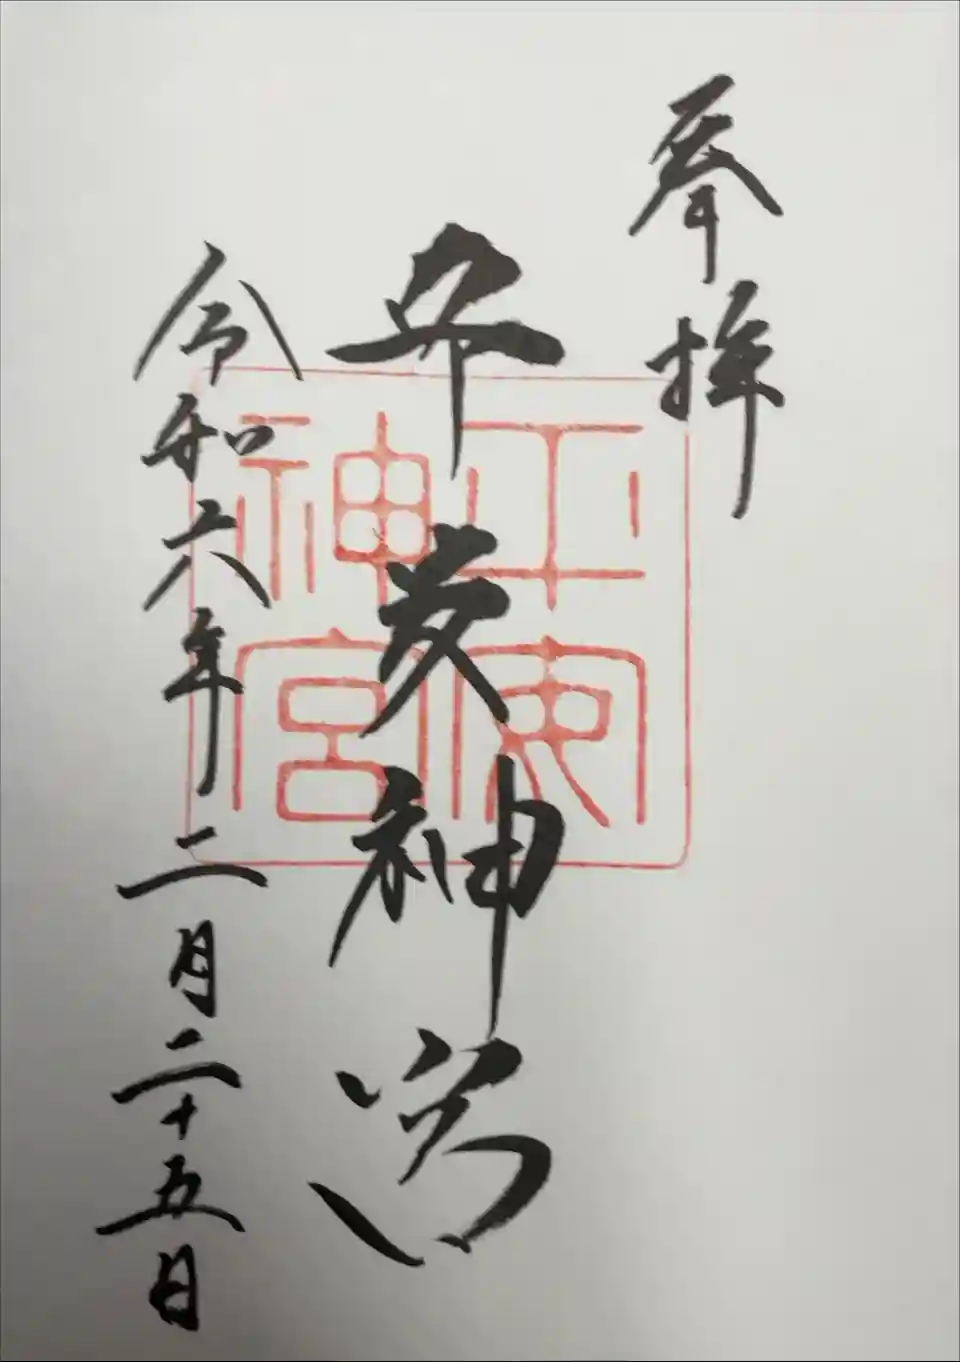 奉拝
平安神宮
令和六年二月二十五日
平安神宮